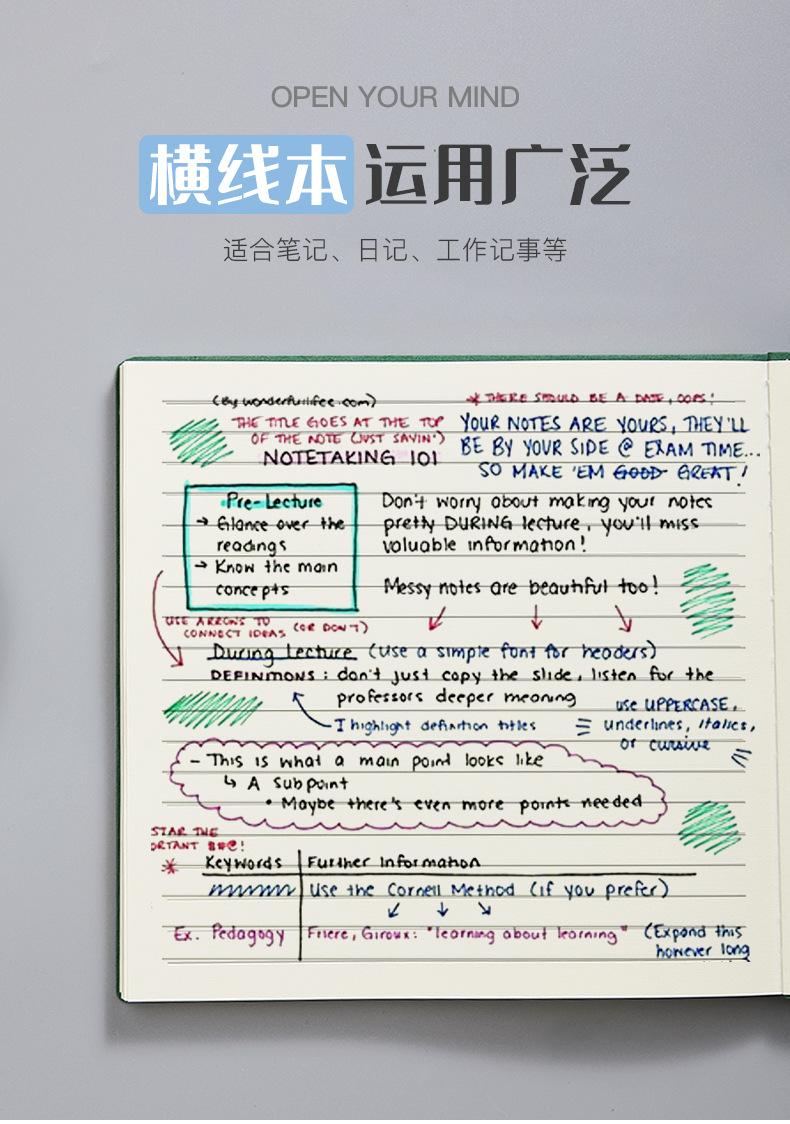 OPEN YOUR MIND
横线本 运用广泛
适合笔记、日记、工作记事等
(By wonderfullifee.com)
* THERE SHOULD BE A DATE, OOPS!
THE TITLE GOES AT THE TOP
OF THE NOTE (JUST SAYIN')
NOTETAKING 101
YOUR NOTES ARE YOURS, THEY'LL
BE BY YOUR SIDE @ EXAM TIME...
SO MAKE 'EM GOOD GREAT!
Pre-Lecture
→ Glance over the
readings
→ Know the main
concepts
Don't worry about making your notes
pretty DURING lecture, you'll miss
valuable information!
Messy notes are beautiful too!
USE ARROWS TO
CONNECT IDEAS (OR DON'T)
During Lecture (Use a simple font for headers)
DEFINITIONS: don't just copy the slide, listen for the
professors deeper meaning
I highlight definition titles
use UPPERCASE,
underlines, italics,
or cursive
- This is what a main point looks like
↳ A Subpoint
• Maybe there's even more points needed
STAR THE
ORTANT $#@!
* Keywords Further Information
Use the Cornell Method (if you prefer)
Ex. Pedagogy Friere, Giroux: "learning about learning" (Expand this
however long